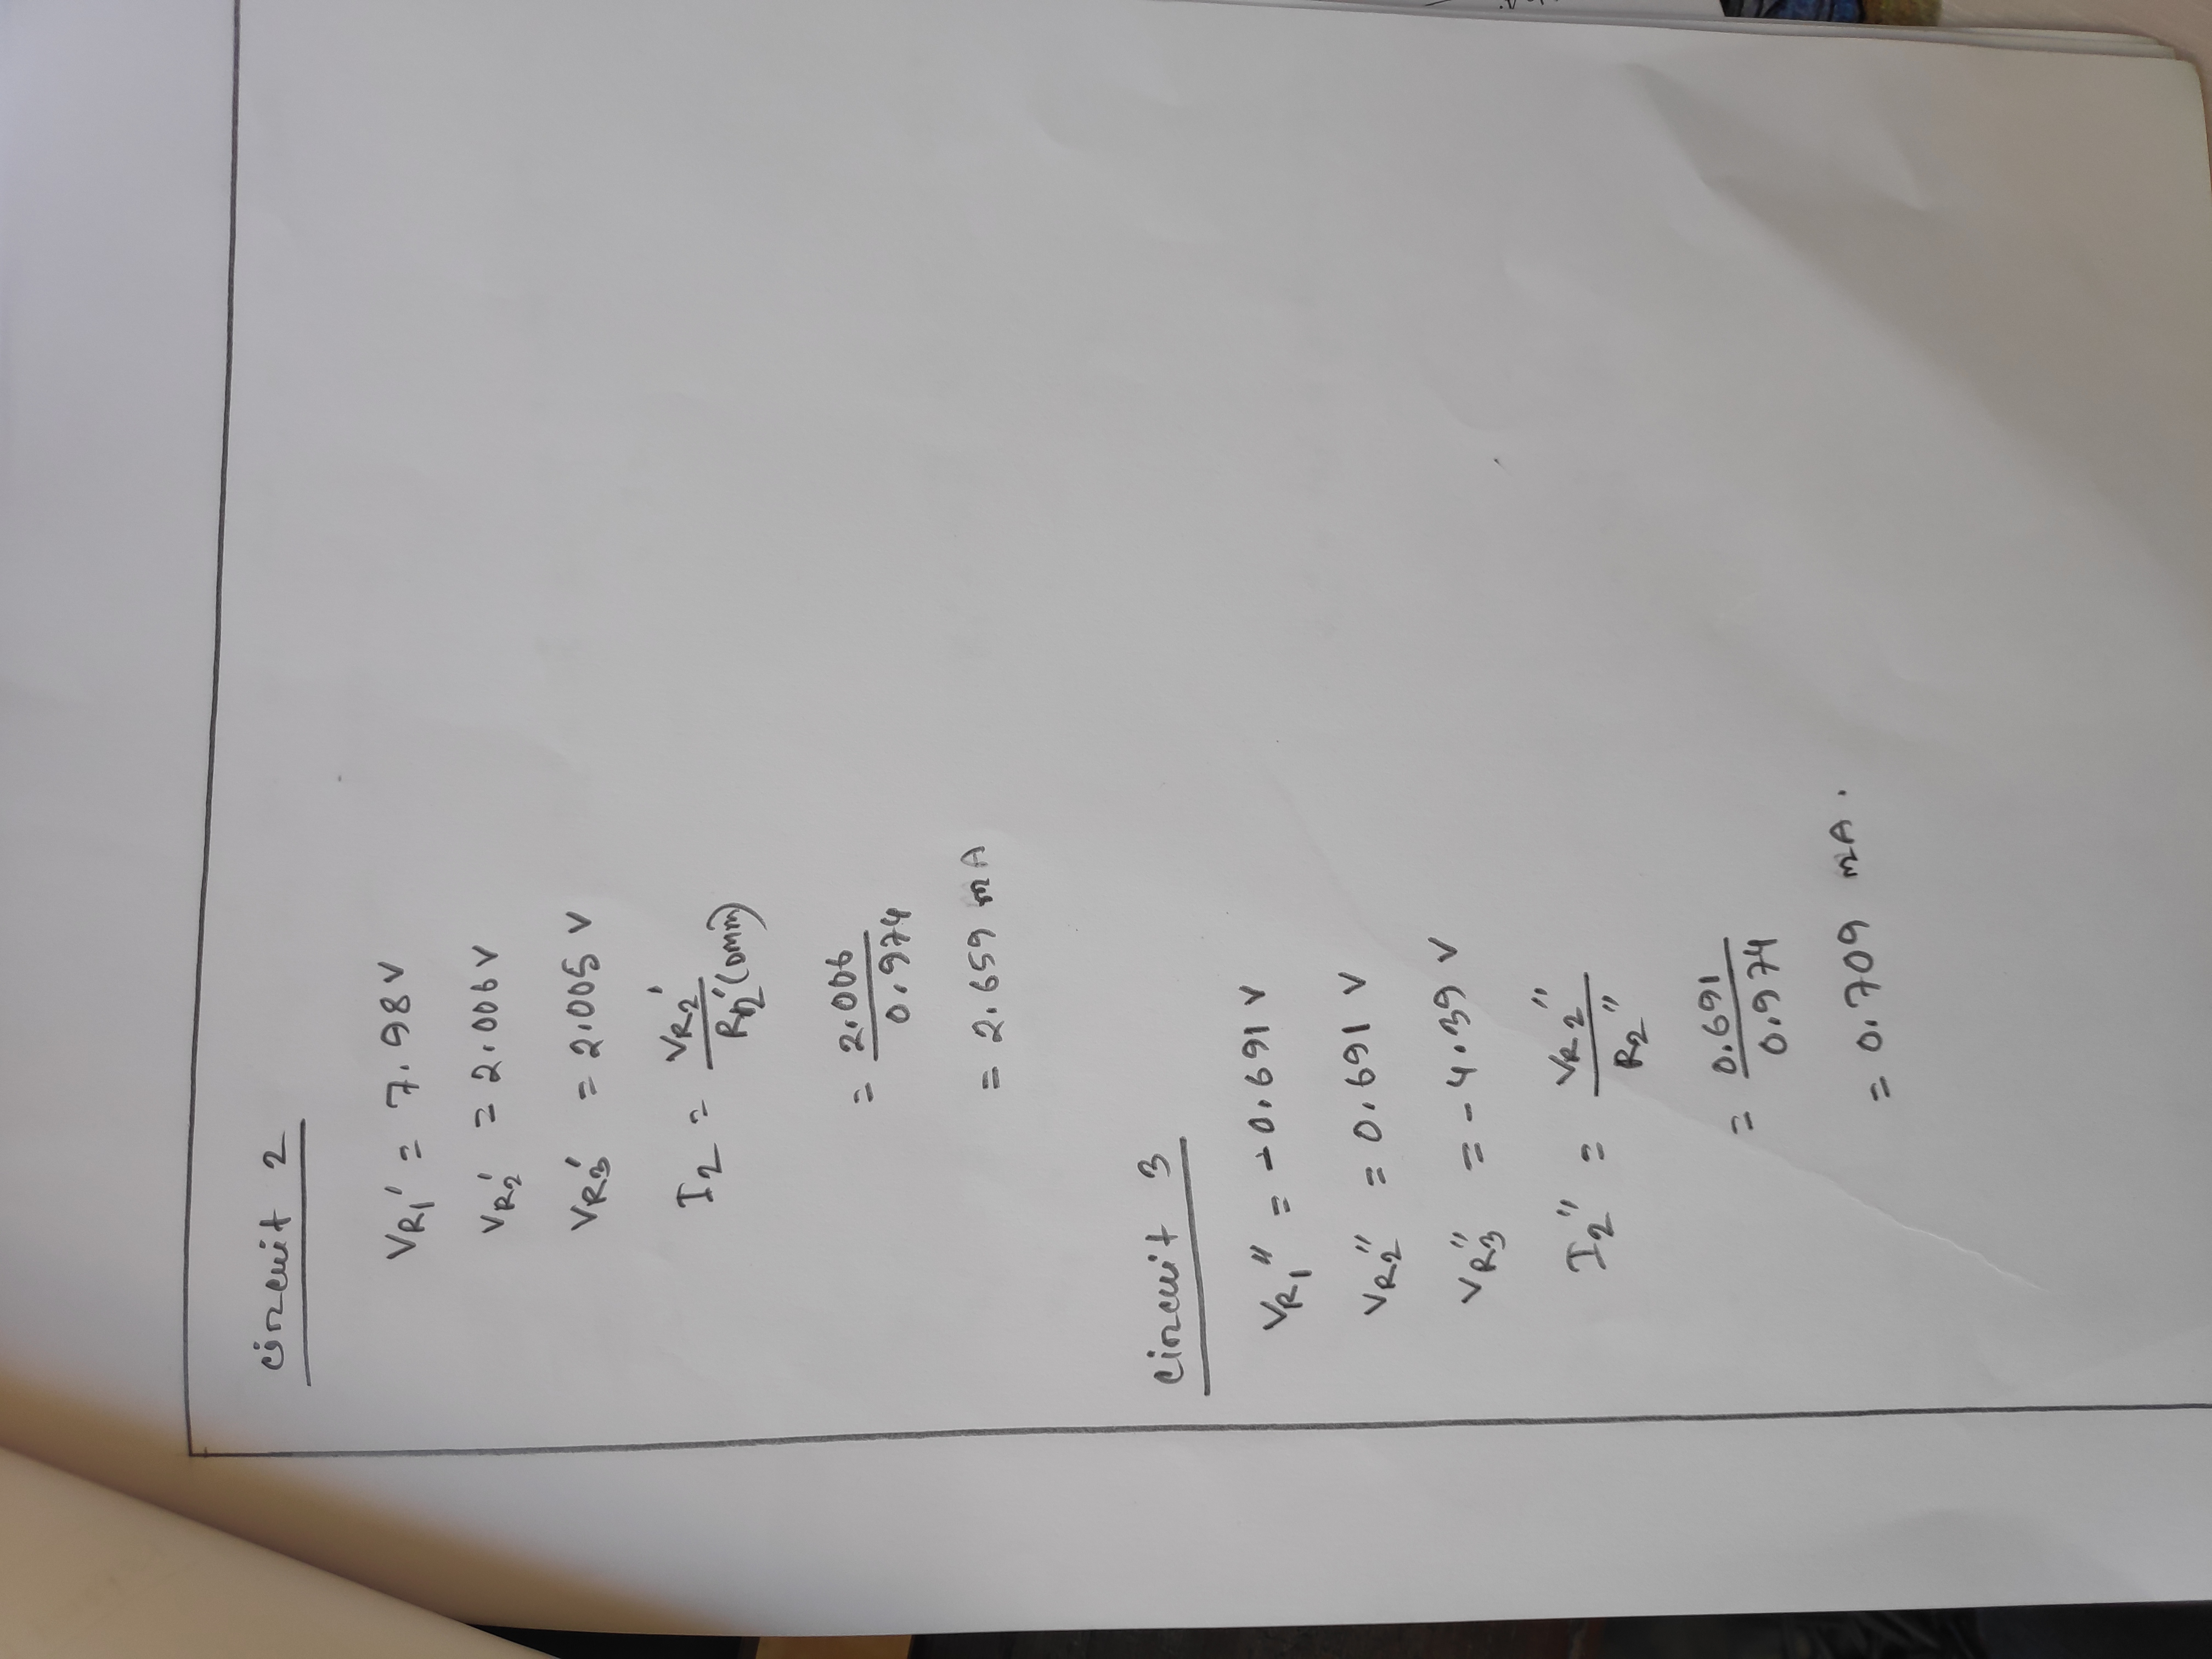 circuit 2
VR1' = 7.98 V
VR2' = 2.006 V
VR3' = 2.005 V
I2 = VR2' / R2' (DMM)
= 2.006 / 0.974
= 2.659 mA
circuit 3
VR1" = -0.691 V
VR2" = 0.691 V
VR3" = -4.39 V
I2" = VR2" / R2"
= 0.691 / 0.974
= 0.709 mA.